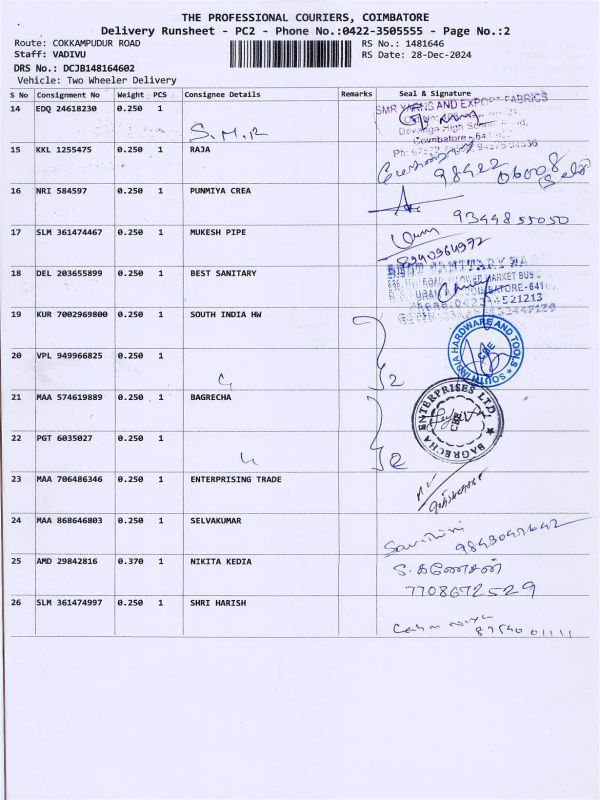 THE PROFESSIONAL COURIERS, COIMBATORE
Delivery Runsheet - PC2 - Phone No.:0422-3505555 - Page No.:2
Route: COKKAMPUDUR ROAD RS No.: 1481646
Staff: VADIVU RS Date: 28-Dec-2024
DRS No.: DCJB148164602
Vehicle: Two Wheeler Delivery
S No Consignment No Weight PCS Consignee Details Remarks Seal & Signature
14 EDQ 24618230 0.250 1 S.M.R
SMR YARNS AND EXPORT FABRICS
Devanga High School Road,
Coimbatore
15 KKL 1255475 0.250 1 RAJA
98422 06008
16 NRI 584597 0.250 1 PUNMIYA CREA
9344855050
17 SLM 361474467 0.250 1 MUKESH PIPE
8940964972
18 DEL 203655899 0.250 1 BEST SANITARY
19 KUR 7002969800 0.250 1 SOUTH INDIA HW
SOUTH INDIA HARDWARE AND TOOLS
CBE
20 VPL 949966825 0.250 1
2
21 MAA 574619889 0.250 1 BAGRECHA
BAGRECHA ENTERPRISES LTD.
CBE
22 PGT 6035027 0.250 1
2
23 MAA 706486346 0.250 1 ENTERPRISING TRADE
24 MAA 868646803 0.250 1 SELVAKUMAR
25 AMD 29842816 0.370 1 NIKITA KEDIA
S. கணேசன்
7708672529
26 SLM 361474997 0.250 1 SHRI HARISH